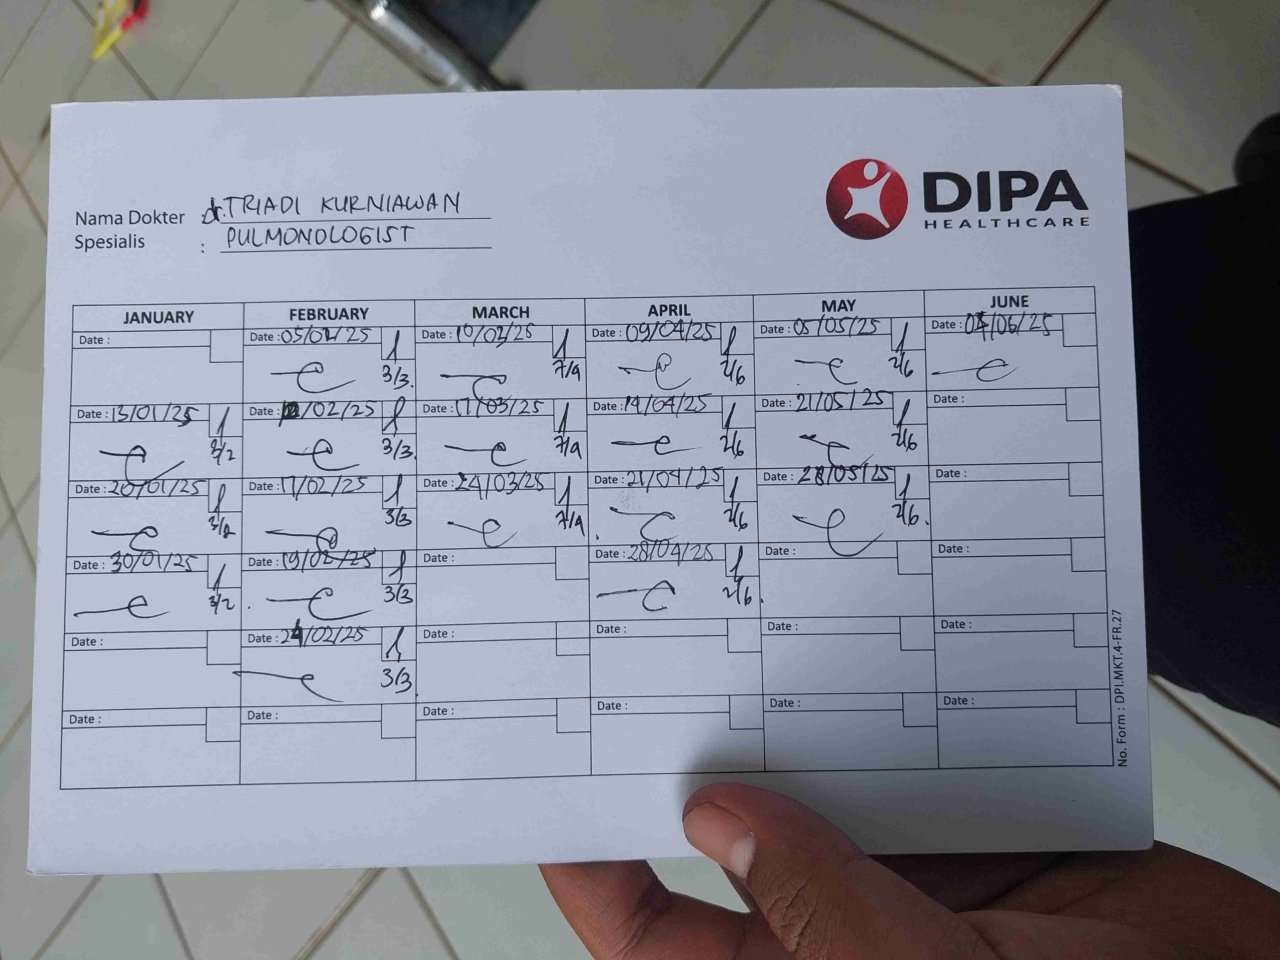 DIPA
HEALTHCARE
Nama Dokter : dr. TRIADI KURNIAWAN
Spesialis : PULMONOLOGIST
JANUARY FEBRUARY MARCH APRIL MAY JUNE
Date : Date : 05/02/25 Date : 10/03/25 Date : 09/04/25 Date : 05/05/25 Date : 04/06/25
3/3. 7/4 2/6 2/6
Date : 13/01/25 Date : 12/02/25 Date : 17/03/25 Date : 14/04/25 Date : 21/05/25 Date :
3/2 3/3. 7/4 2/6 2/6
Date : 20/01/25 Date : 17/02/25 Date : 24/03/25 Date : 21/04/25 Date : 28/05/25 Date :
3/2 3/3 7/4 2/6 2/6.
Date : 30/01/25 Date : 19/02/25 Date : Date : 28/04/25 Date : Date :
3/2 3/3 2/6.
Date : Date : 24/02/25 Date : Date : Date : Date :
3/3
Date : Date : Date : Date : Date : Date :
No. Form : DPI.MKT.4-FR.27